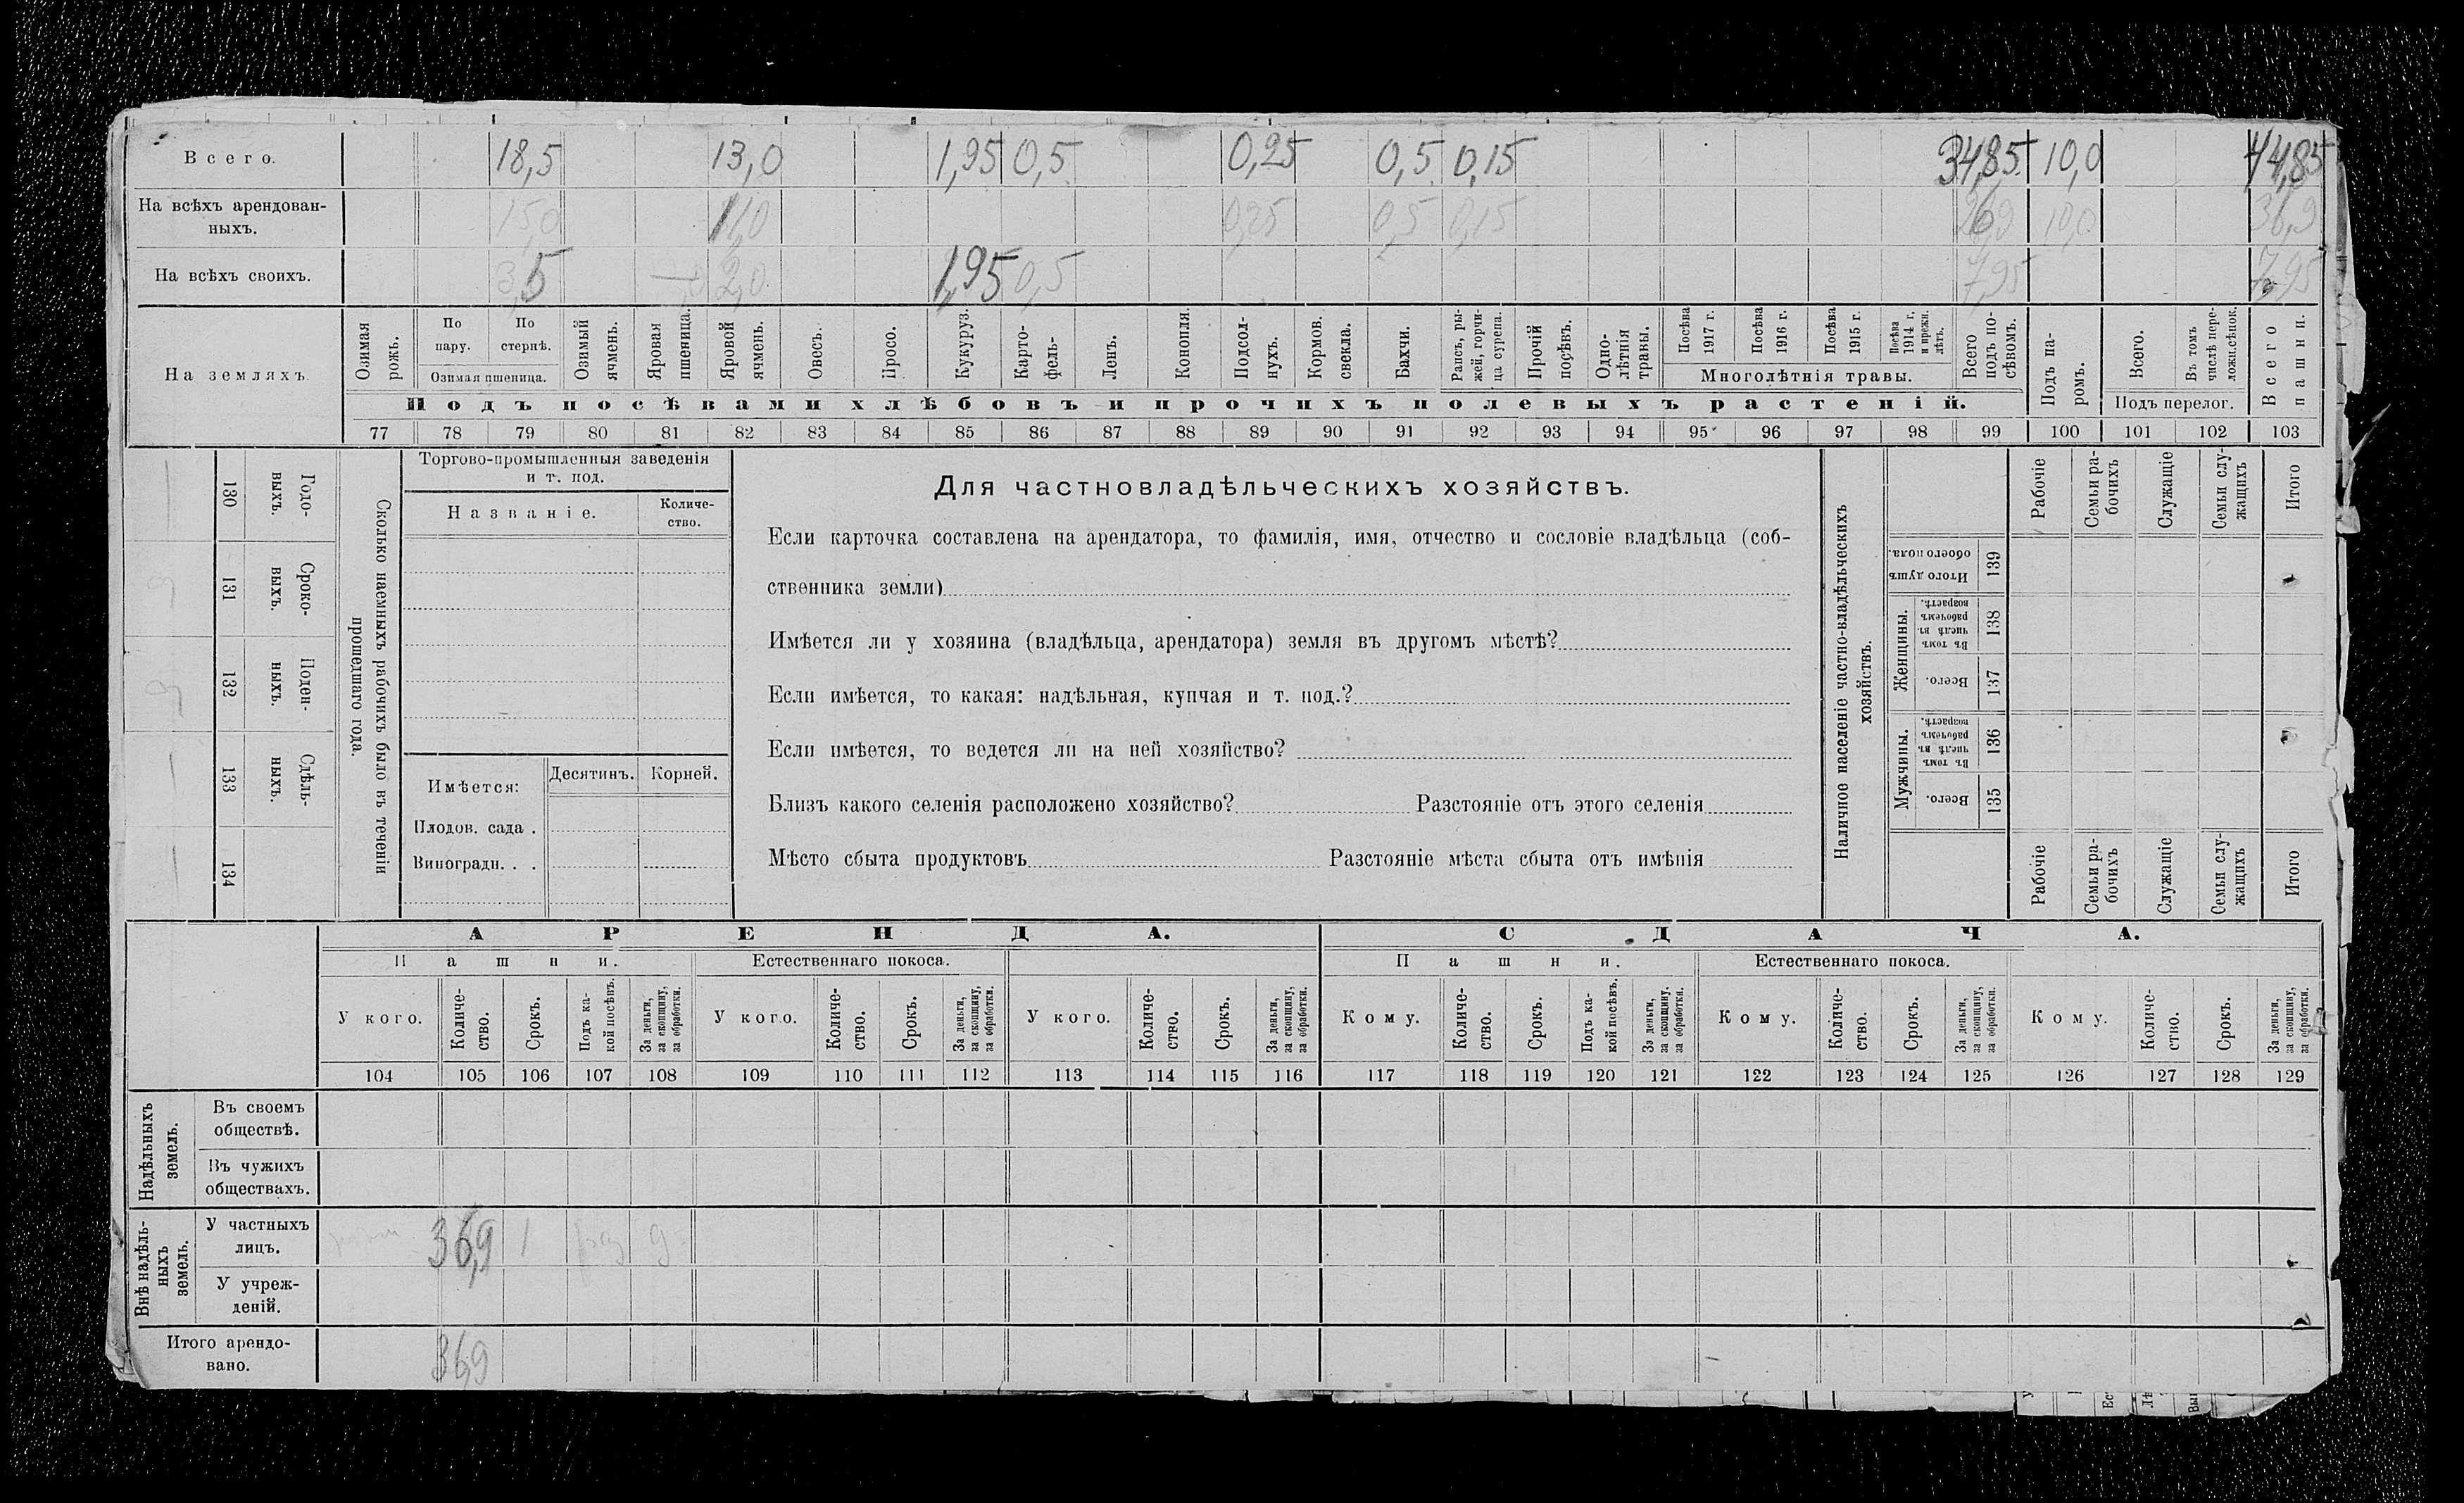 Всего. 18,5 13,0 1,95 0,5 0,25 0,5 0,15 34,85 10,0 44,85
На всѣхъ арендован-
ныхъ. 15,0 11,0 0,25 0,5 0,15 26,9 10,0 36,9
На всѣхъ своихъ. 3,5 2,0 1,95 0,5 7,95 7,95
На земляхъ.
Озимая рожь.
По пару.
По стернѣ.
Озимая пшеница.
Озимый ячмень.
Яровая пшеница.
Яровой ячмень.
Овесъ.
Просо.
Кукуруз.
Карто-
фель-
Ленъ.
Конопля.
Подсол-
нухъ.
Кормов. свекла.
Бахчи.
Рапсъ, ры-
жей, горчи-
ца сурепа.
Прочій посѣвъ.
Одно-
лѣтнія травы.
Посѣва 1917 г.
Посѣва 1916 г.
Посѣва 1915 г.
Посѣва 1914 г. и прежн. лѣтъ.
Многолѣтнія травы.
Всего подъ по-
сѣвомъ.
Подъ па-
ромъ.
Всего.
Въ томъ числѣ пере-
ложн.сѣнок.
Подъ перелог.
Всего пашни.
Подъ посѣвами хлѣбовъ и прочихъ полевыхъ растеній.
77 78 79 80 81 82 83 84 85 86 87 88 89 90 91 92 93 94 95 96 97 98 99 100 101 102 103
130 Годо-
выхъ.
131 Сроко-
выхъ.
132 Поден-
ныхъ.
133 Сдѣль-
ныхъ.
134
Сколько наемныхъ рабочихъ было въ теченіи
прошедшаго года.
Торгово-промышленныя заведенія
и т. под.
Названіе.
Количе-
ство.
Имѣется:
Десятинъ. Корней.
Плодов. сада .
Виноградн. . .
Для частновладѣльческихъ хозяйствъ.
Если карточка составлена на арендатора, то фамилія, имя, отчество и сословіе владѣльца (соб-
ственника земли)
Имѣется ли у хозяина (владѣльца, арендатора) земля въ другомъ мѣстѣ?
Если имѣется, то какая: надѣльная, купчая и т. под.?
Если имѣется, то ведется ли на ней хозяйство?
Близъ какого селенія расположено хозяйство? Разстояніе отъ этого селенія
Мѣсто сбыта продуктовъ Разстояніе мѣста сбыта отъ имѣнія
Наличное населеніе частно-владѣльческихъ
хозяйствъ.
Рабочіе
Семьи ра-
бочихъ
Служащіе
Семьи слу-
жащихъ
Итого
Итого душъ
обоего пола.
139
Женщины.
Въ томъ числѣ въ рабочемъ возрастѣ.
138
Всего.
137
Мужчины.
Въ томъ числѣ въ рабочемъ возрастѣ.
136
Всего.
135
Рабочіе
Семьи ра-
бочихъ
Служащіе
Семьи слу-
жащихъ
Итого
АРЕНДА. СДАЧА.
Пашни. Естественнаго покоса. Пашни. Естественнаго покоса.
У кого.
Количе-
ство.
Срокъ.
Подъ ка-
кой посѣвъ.
За деньги,
за скопщину,
за обработки.
У кого.
Количе-
ство.
Срокъ.
За деньги,
за скопщину,
за обработки.
У кого.
Количе-
ство.
Срокъ.
За деньги,
за скопщину,
за обработки.
Кому.
Количе-
ство.
Срокъ.
Подъ ка-
кой посѣвъ.
За деньги,
за скопщину.
за обработки.
Кому.
Количе-
ство.
Срокъ.
За деньги,
за скопщину,
за обработки.
Кому.
Количе-
ство.
Срокъ.
За деньги,
за скопщину,
за обработки.
104 105 106 107 108 109 110 111 112 113 114 115 116 117 118 119 120 121 122 123 124 125 126 127 128 129
Надѣльныхъ
земель.
Въ своемъ
обществѣ.
Въ чужихъ
обществахъ.
Внѣ надѣль-
ныхъ
земель.
У частныхъ
лицъ. 36,9 1
У учреж-
деній.
Итого арендо-
вано. 36,9